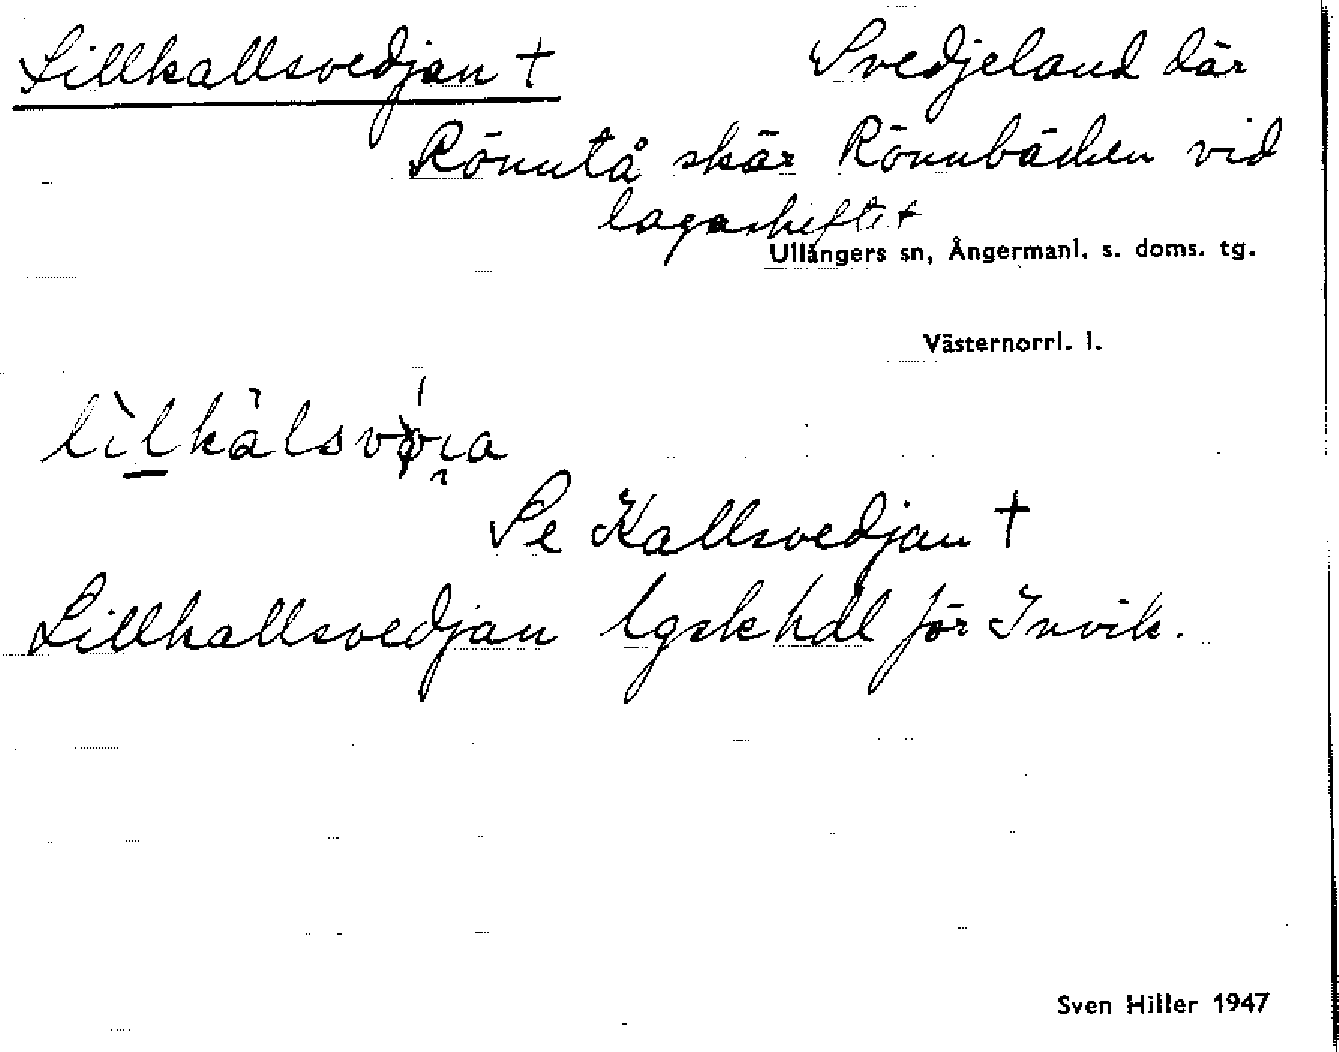 Lillkallsvedjan † Svedjeland där
Rönntå skär Rönnbäcken vid
lagaskiftet
Ullångers sn, Ångermanl. s. doms. tg.
Västernorrl. l.
Se Kallsvedjan †
Lillkallsvedjan lgsk hdl för Invik.
Sven Hiller 1947